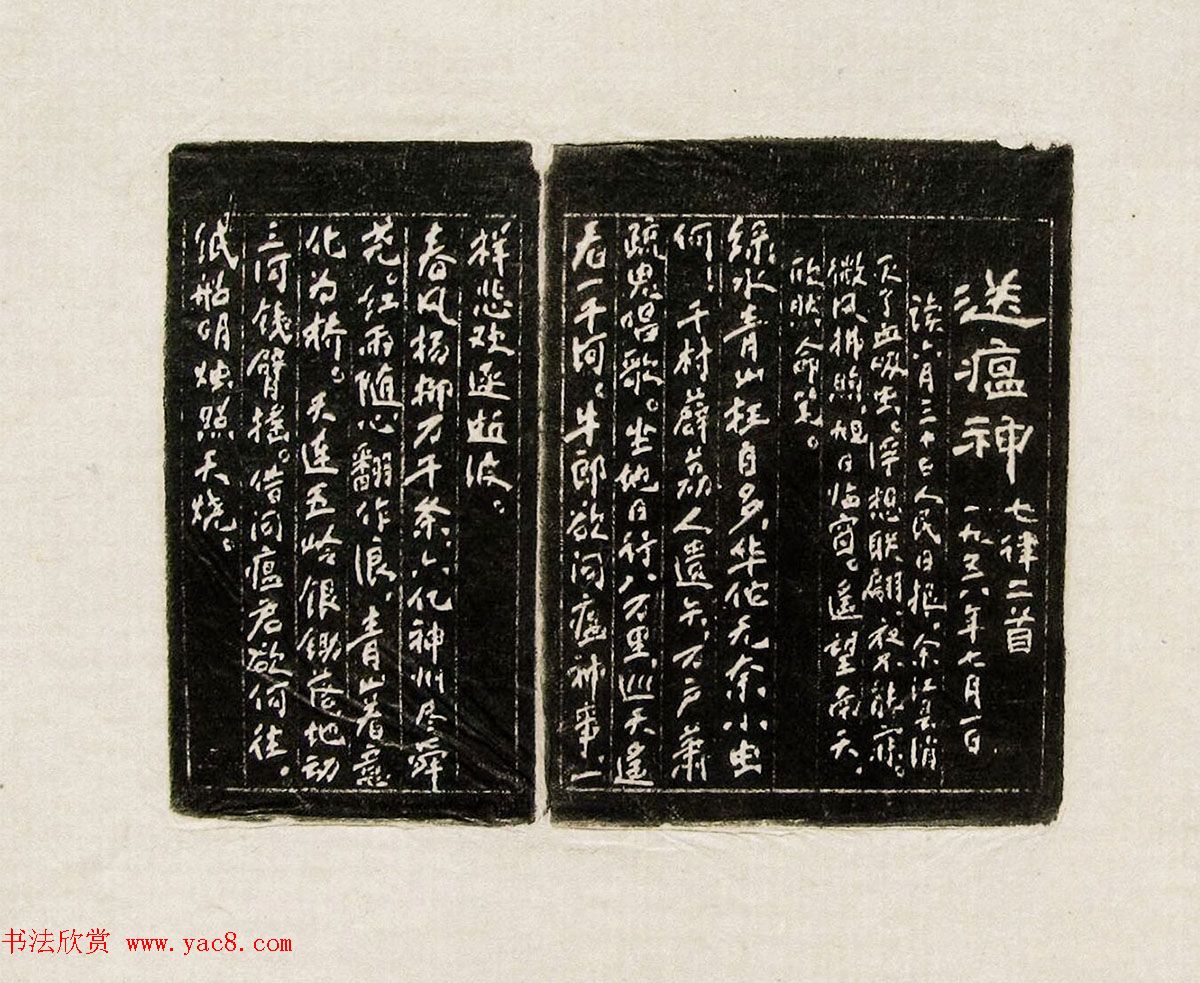 送瘟神 七律二首
一九五八年七月一日
读六月三十日人民日报，余江县消
灭了血吸虫。浮想联翩，夜不能寐。
微风拂煦，旭日临窗。遥望南天，
欣然命笔。
绿水青山枉自多，华佗无奈小虫
何！千村薜荔人遗矢，万户萧
疏鬼唱歌。坐地日行八万里，巡天遥
看一千河。牛郎欲问瘟神事，一
样悲欢逐逝波。
春风杨柳万千条，六亿神州尽舜
尧。红雨随心翻作浪，青山着意
化为桥。天连五岭银锄落，地动
三河铁臂摇。借问瘟君欲何往，
纸船明烛照天烧。
书法欣赏 www.yac8.com